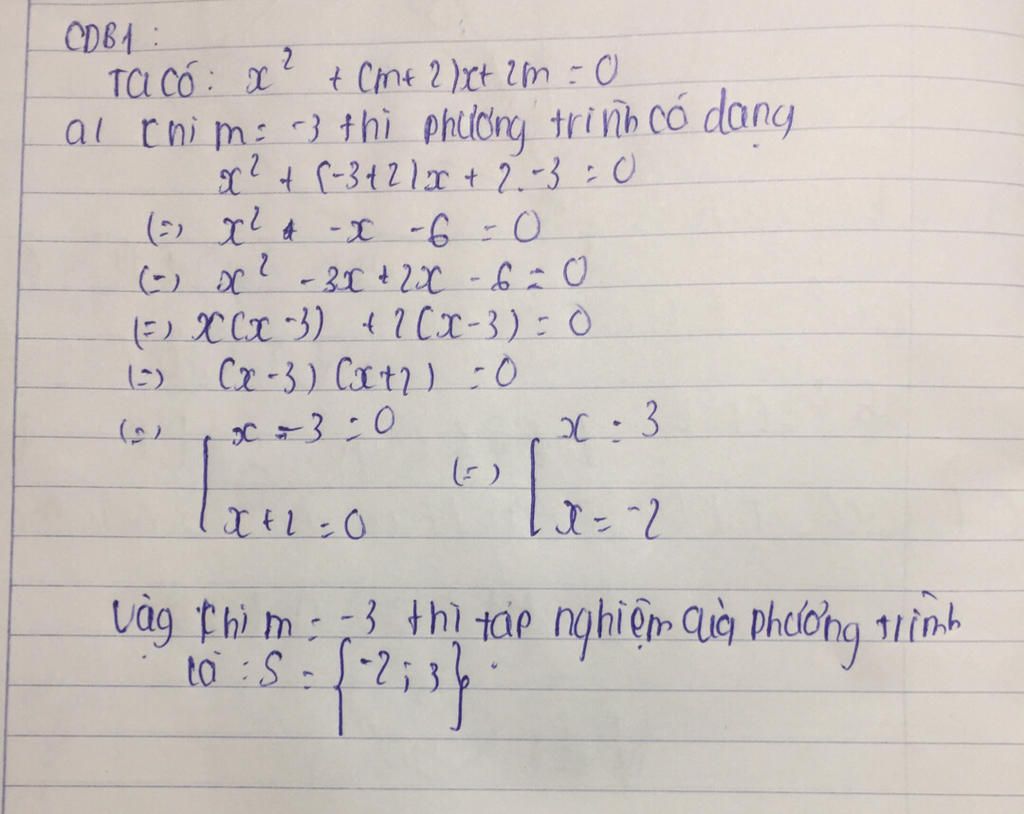 CDB1:
Ta có: x² + (m+2)x+2m = 0
a/ Khi m = -3 thì phương trình có dạng
x² + (-3+2)x + 2.-3 = 0
(=) x² + -x -6 = 0
(=) x² -3x+2x -6 = 0
(=) x(x-3) +2(x-3) = 0
(=) (x-3)(x+2) = 0
(=) [ x-3 = 0 (=) [ x = 3
x+2 = 0 x = -2
Vậy khi m = -3 thì tập nghiệm của phương trình
là: S = {-2; 3}.